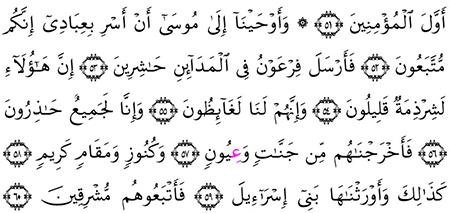 أَوَّلَ ٱلْمُؤْمِنِينَ ﴿٥١﴾ ۞ وَأَوْحَيْنَآ إِلَىٰ مُوسَىٰٓ أَنْ أَسْرِ بِعِبَادِىٓ إِنَّكُم
مُّتَّبَعُونَ ﴿٥٢﴾ فَأَرْسَلَ فِرْعَوْنُ فِى ٱلْمَدَآئِنِ حَـٰشِرِينَ ﴿٥٣﴾ إِنَّ هَـٰٓؤُلَآءِ
لَشِرْذِمَةٌ قَلِيلُونَ ﴿٥٤﴾ وَإِنَّهُمْ لَنَا لَغَآئِظُونَ ﴿٥٥﴾ وَإِنَّا لَجَمِيعٌ حَـٰذِرُونَ
﴿٥٦﴾ فَأَخْرَجْنَـٰهُم مِّن جَنَّـٰتٍ وَعِيُونٍ ﴿٥٧﴾ وَكُنُوزٍ وَمَقَامٍ كَرِيمٍ ﴿٥٨﴾
كَذَٰلِكَ وَأَوْرَثْنَـٰهَا بَنِىٓ إِسْرَٰٓءِيلَ ﴿٥٩﴾ فَأَتْبَعُوهُم مُّشْرِقِينَ ﴿٦٠﴾